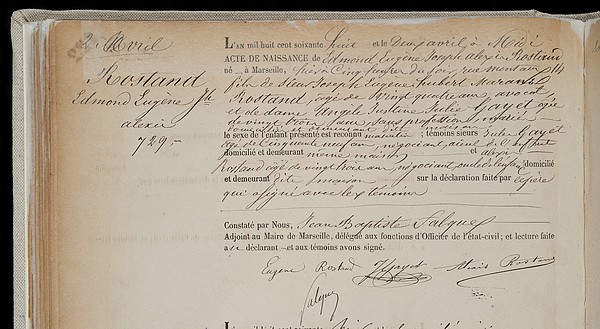 2 Avril
Rostand
Edmond Eugène Jh
alexis
729.-
L'AN mil huit cent soixante huit et le Deux avril, à Midi
ACTE DE NAISSANCE de Edmond Eugène Joseph alexis Rostand
né à Marseille, hier à Cinq heures du soir, rue montaux 14
fils de Sieur Joseph Eugène hubert
Rostand, agé de vingt quatre ans, avocat,
et de dame Angèle Justine Julie Gayet agée
de vingt trois ans, sans profession, mariés
domiciliés et demeurant dite maison
le sexe de l'enfant présenté est reconnu masculin; témoins sieurs Jules Gayet
agé de Cinquante neuf ans, négociant, aieul de l'enfant
domicilié et demeurant même maison et alexis
Rostand agé de vingt trois ans, négociant, oncle de l'enfant, domicilié
et demeurant dite maison sur la déclaration faite par le père
qui a signé avec les témoins
Constaté par Nous, Jean Baptiste Falques
Adjoint au Maire de Marseille, délégué aux fonctions d'Officier de l'état-civil; et lecture faite
au déclarant et aux témoins avons signé.
Eugène Rostand JGayet Alexis Rostand
Falques
L'AN mil huit cent soixante